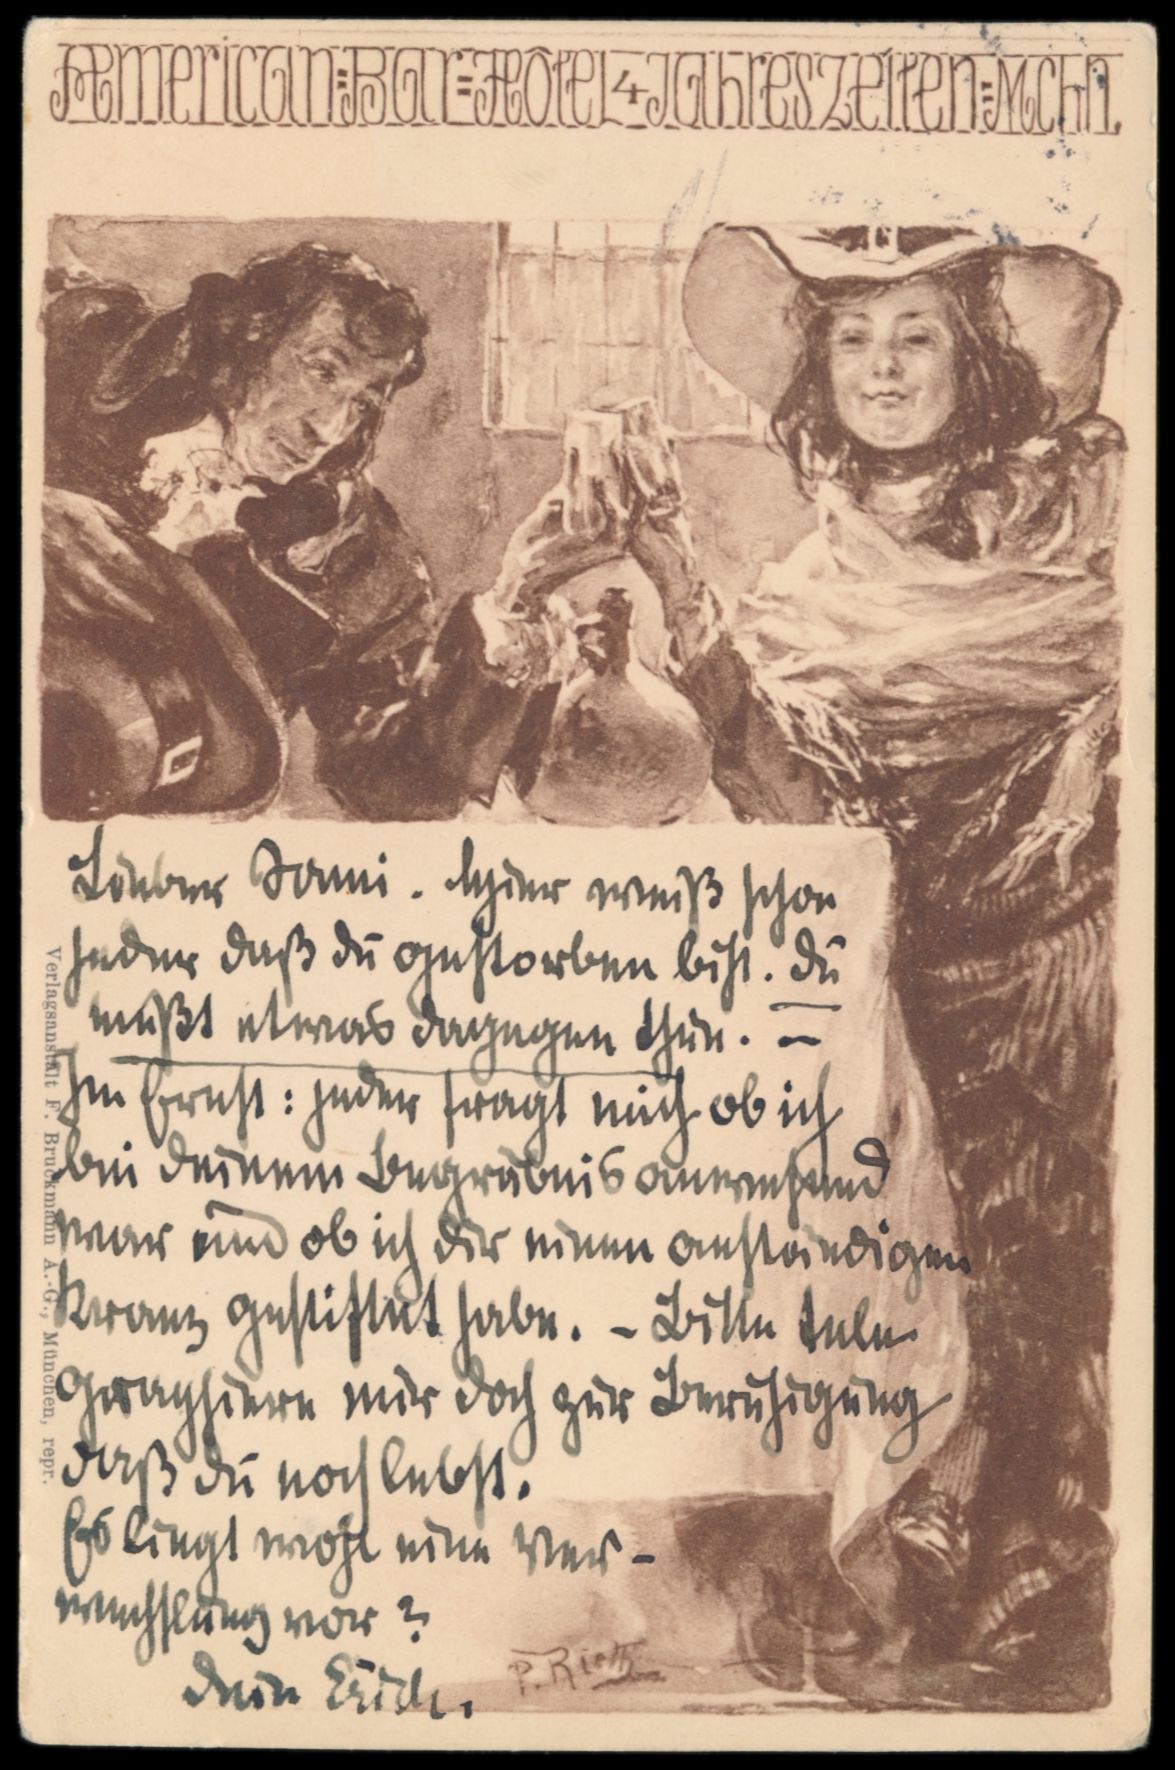 American=Bar=Hôtel 4 Jahreszeiten=Mchn.
Lieber Sami. Hier weiß schon
jeder daß du gestorben bist. Du
mußt etwas dagegen thun. –
Im Ernst: jeder fragt mich ob ich
bei deinem Begräbnis anwesend
war und ob ich dir einen anständigen
Kranz gestiftet habe. – Bitte tele-
graphiere mir doch zur Beruhigung
daß du noch lebst.
Es liegt wohl eine Ver-
wechslung vor?
Dein Erich.
P. Rieth
Verlagsanstalt F. Bruckmann A.-G., München, repr.